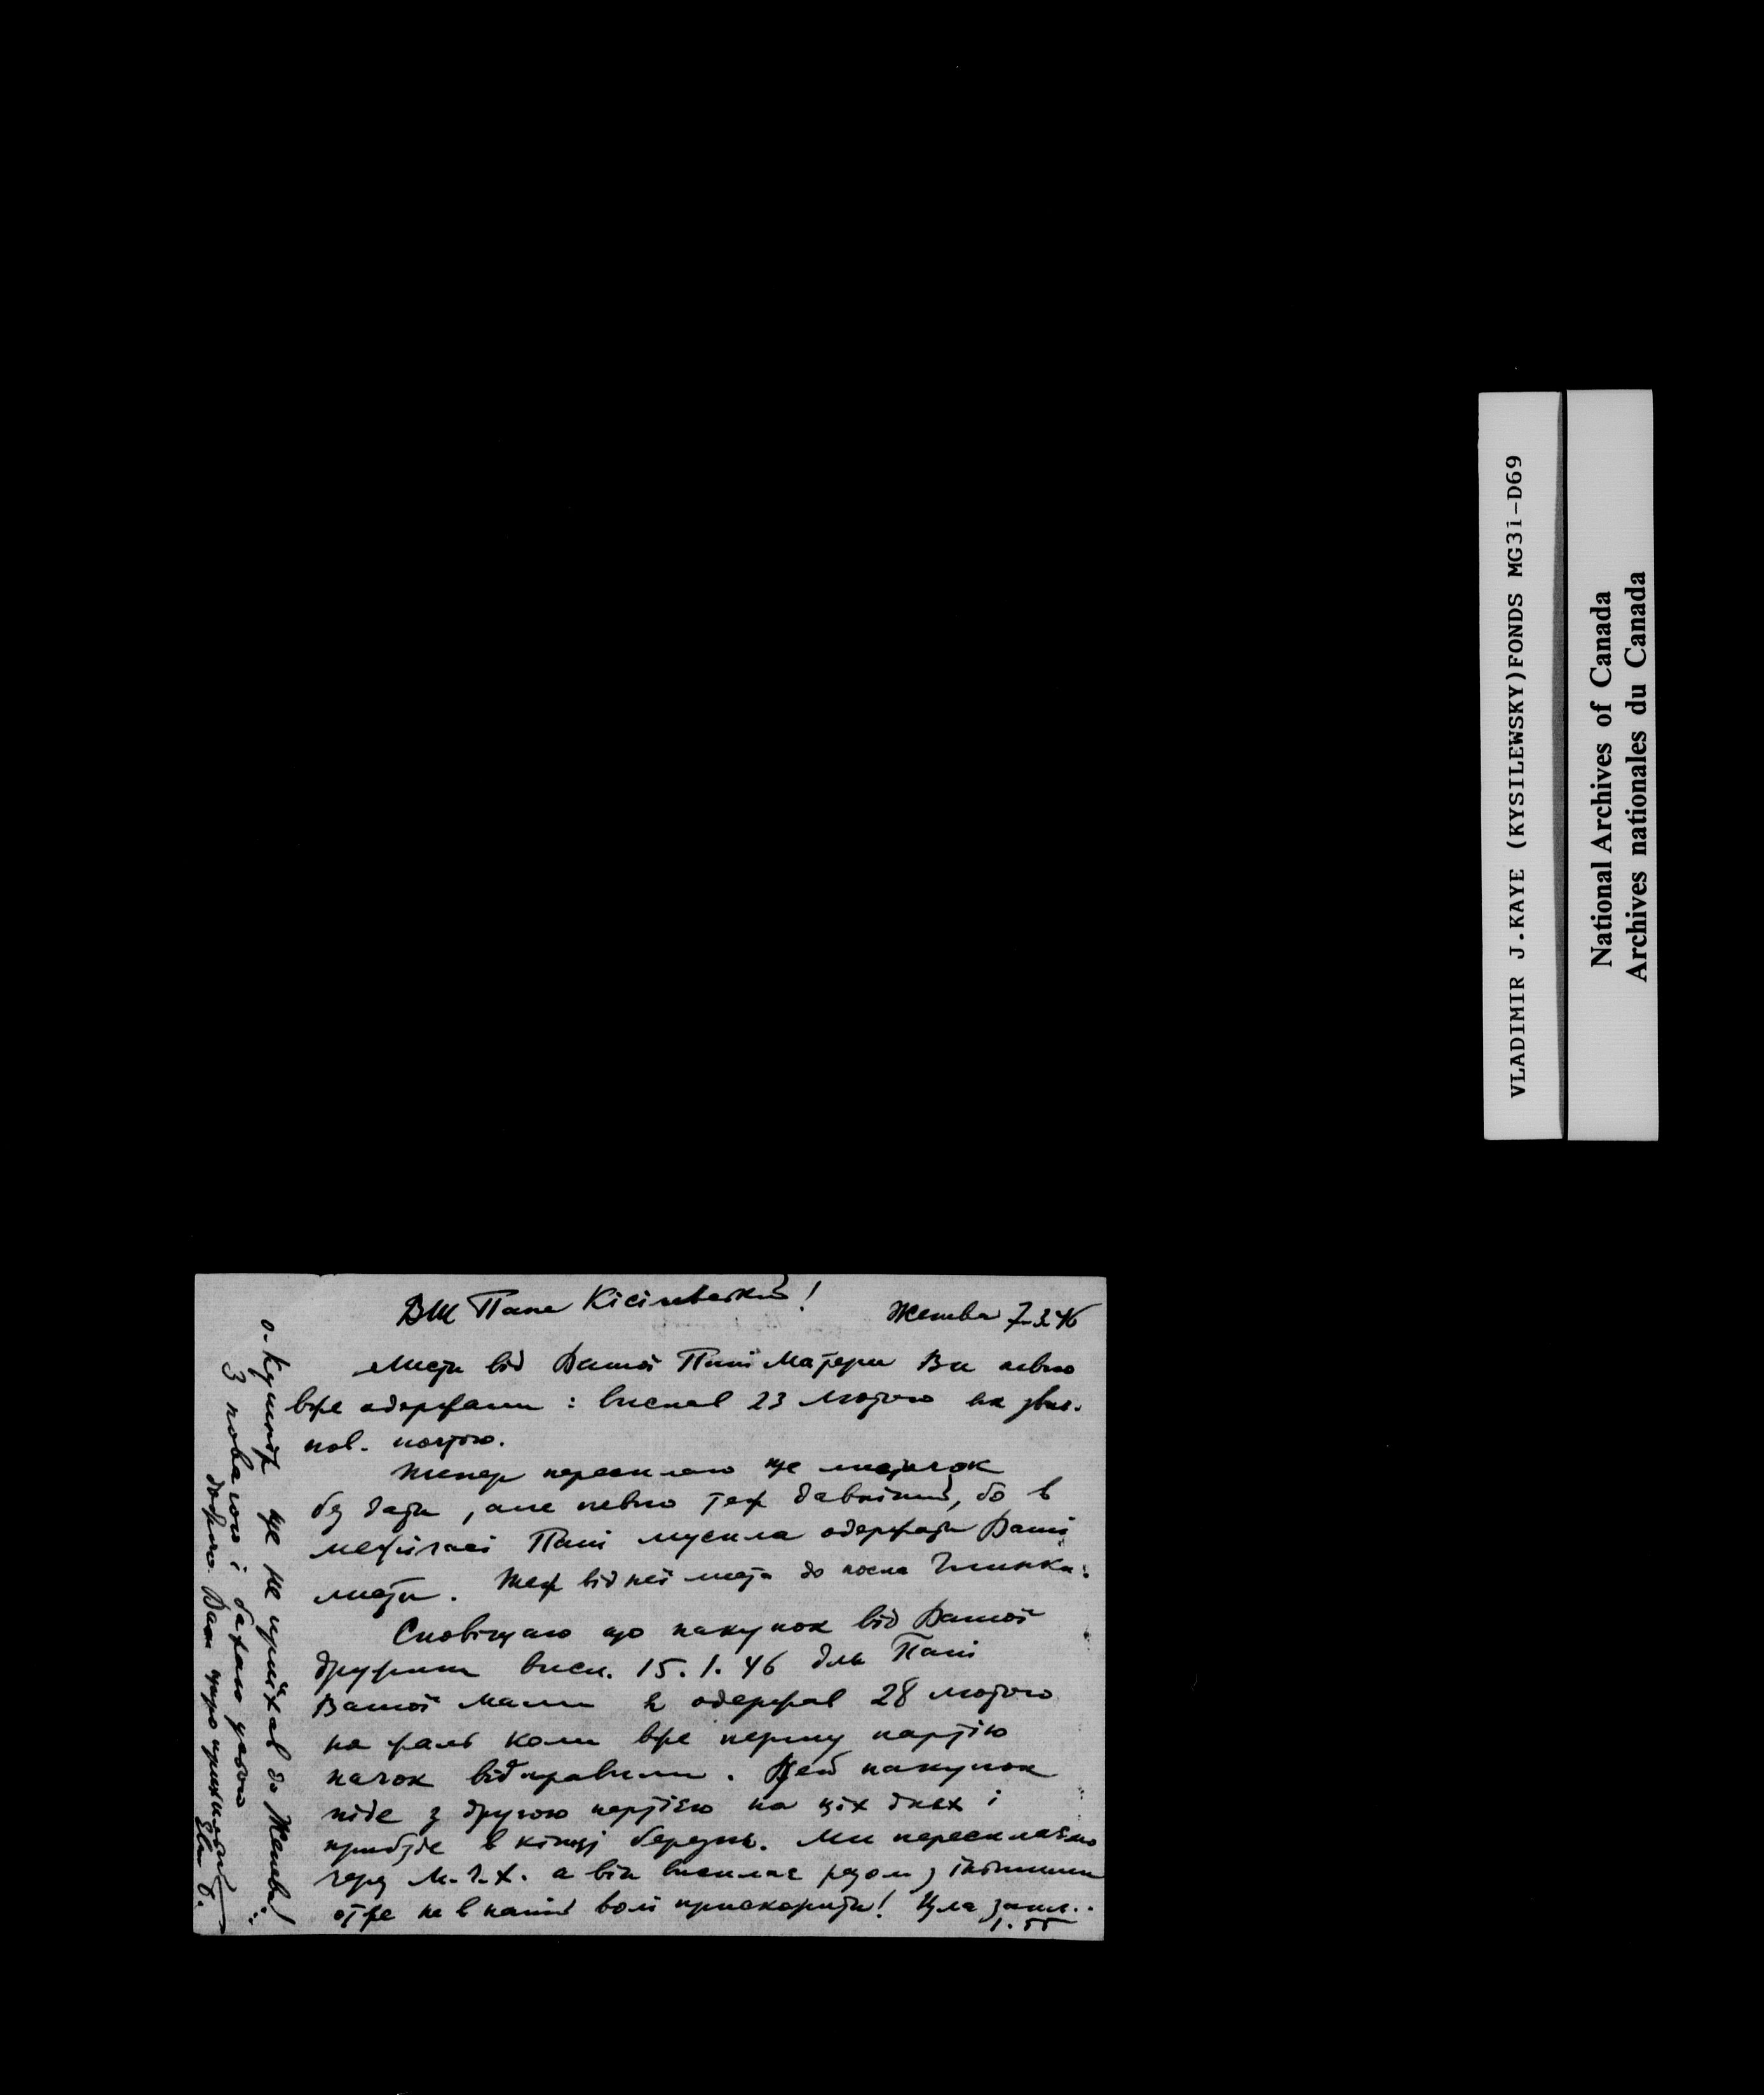 ВШ Пане Кісілевський!
Женева 7.3.46
Листи від Вашої Пані Матери Ви певно
вже одержали: вислав 23 лютого як звич.
пов. поштою.
Тепер пересилаю ще листочок
без дати, але певно теж давніший, бо в
межичасі Пані мусила одержати Ваші
листи. Теж від неї листа до посла Глинка.
Сповіщаю що пакунок від Вашої
дружини висл. 15.1.46 для Пані
Вашої Мами я одержав 28 лютого
на жаль коли вже першу партію
пачок відправили. Цей пакунок
піде з другою партією на ціх днях і
прибуде в кінці березня. Ми пересилаємо
через М.Ч.Х. а він висилає разом з іншими
отже не в нашій волі прискорити!
о. Кушнір ще не приїхав до Женеви!
З повагою і бажаю усього
доброго. Ваш щиро прихильний
VLADIMIR J.KAYE (KYSILEWSKY)FONDS MG31-D69
National Archives of Canada
Archives nationales du Canada